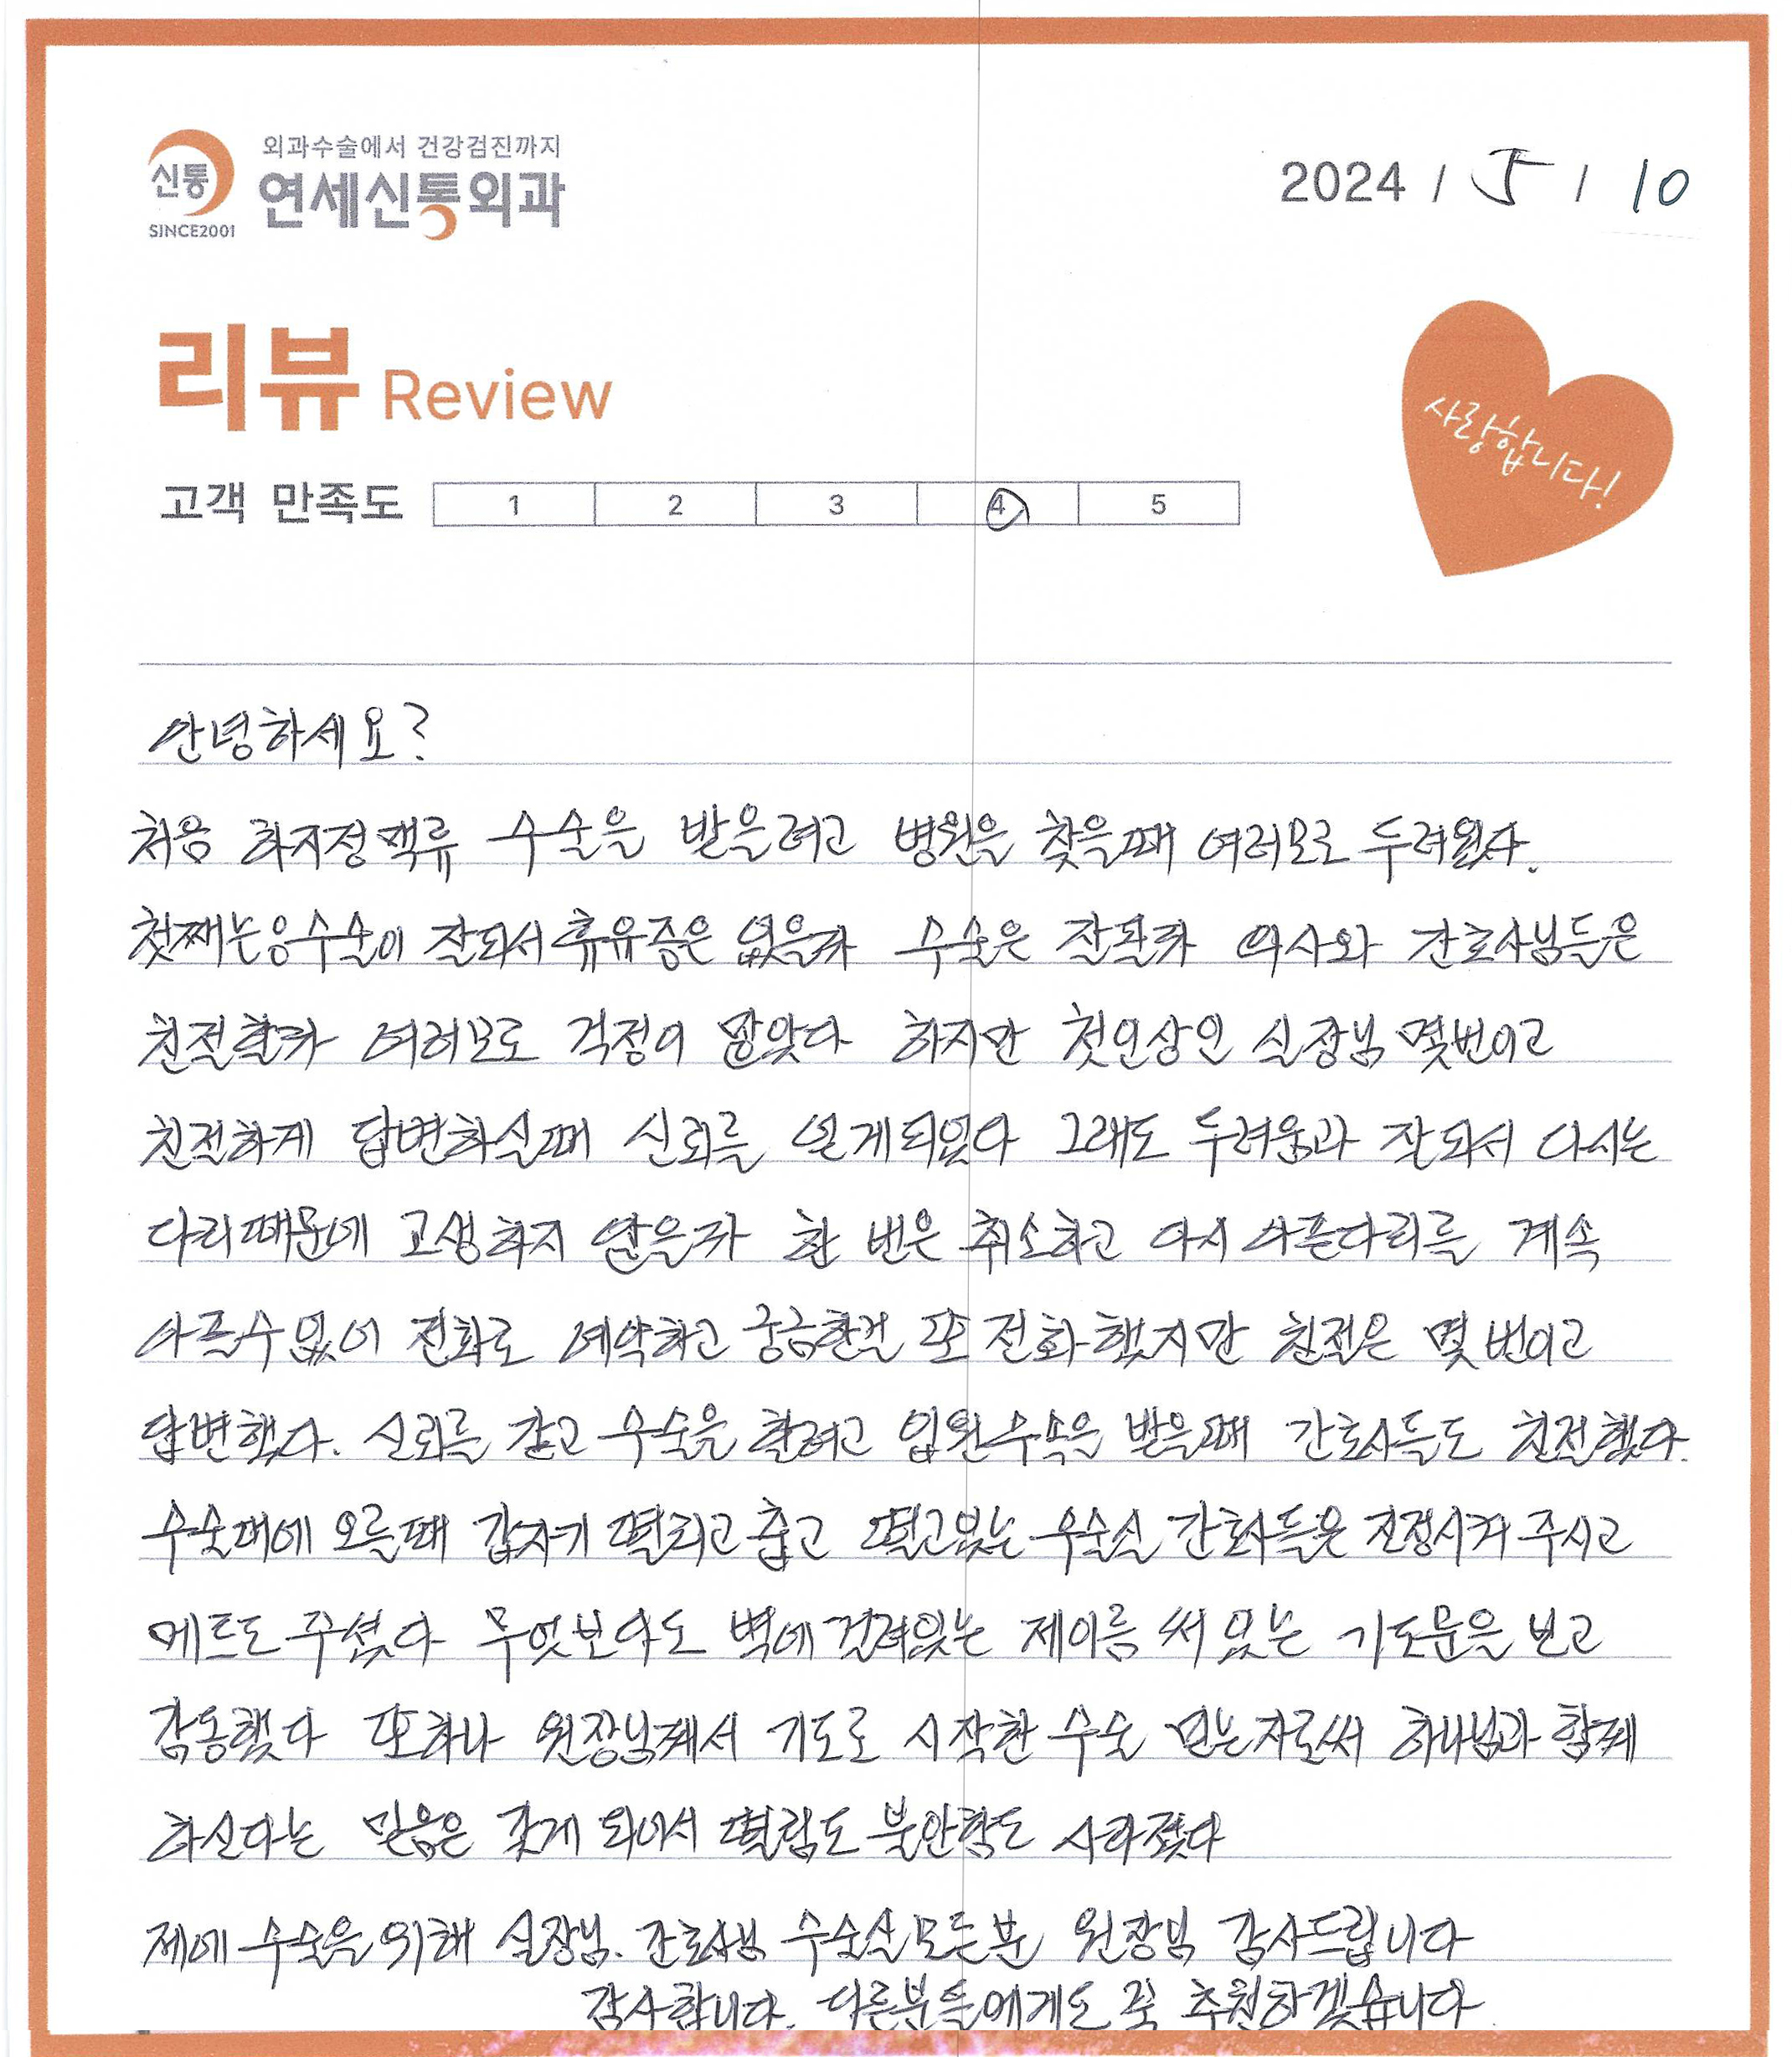 외과수술에서 건강검진까지
신통
연세신통외과
SINCE2001
2024 / 5 / 10
리뷰 Review
사랑합니다!
고객 만족도 1 2 3 4 5
안녕하세요?
처음 하지정맥류 수술을 받을려고 병원을 찾을때 여러모로 두려웠다.
첫째는 수술이 잘되서 휴유증은 없을까 수술은 잘될까 의사와 간호사님들은
친절할까 여러모로 걱정이 많았다 하지만 첫인상인 실장님 몇번이고
친절하게 답변하실때 신뢰를 얻게되었다 그래도 두려움과 잘되서 다시는
다리때문에 고생하지 않을까 한 번은 취소하고 다시 아픈다리를 계속
아플수없어 전화로 예약하고 궁금한걸 또 전화했지만 친절은 몇번이고
답변했다. 신뢰를 갖고 수술을 할려고 입원수속을 받을때 간호사들도 친절했다.
수술대에 오를때 갑자기 떨리고 춥고 떨고있는 수술실 간호사들은 진정시켜 주시고
메트도 주셨다 무엇보다도 벽에걸려있는 제이름 써 있는 기도문을 보고
감동했다 또하나 원장님께서 기도로 시작한 수술 믿는자로써 하나님과 함께
하신다는 믿음은 갖게 되어서 떨림도 불안함도 사라졌다
제에 수술을 위해 실장님. 간호사님 수술실모든분 원장님 감사드립니다
감사합니다. 다른분들에게도 꼭 추천하겠습니다